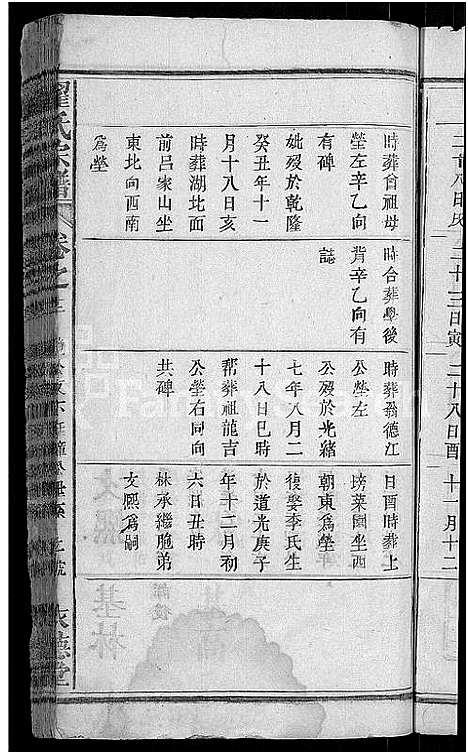 時葬曾祖母
塋左辛乙向
有碑
妣歿於乾隆
癸丑年十一
月十八日亥
時葬湖北面
前呂家山坐
東北向西南
爲塋
時合葬學後
背辛乙向有
誌
時葬翁德江
公塋左
公歿於光緒
七年八月二
十八日巳時
幇葬祖龍吉
公塋右同向
共碑
日酉時葬上
塝菜園坐西
朝東爲塋
復娶李氏生
於道光庚子
年十二月初
六日丑時
林承繼胞弟
文熙爲嗣
氏宗譜
卷之
敦德堂
三十三日寅
二十八日酉
十一月十二